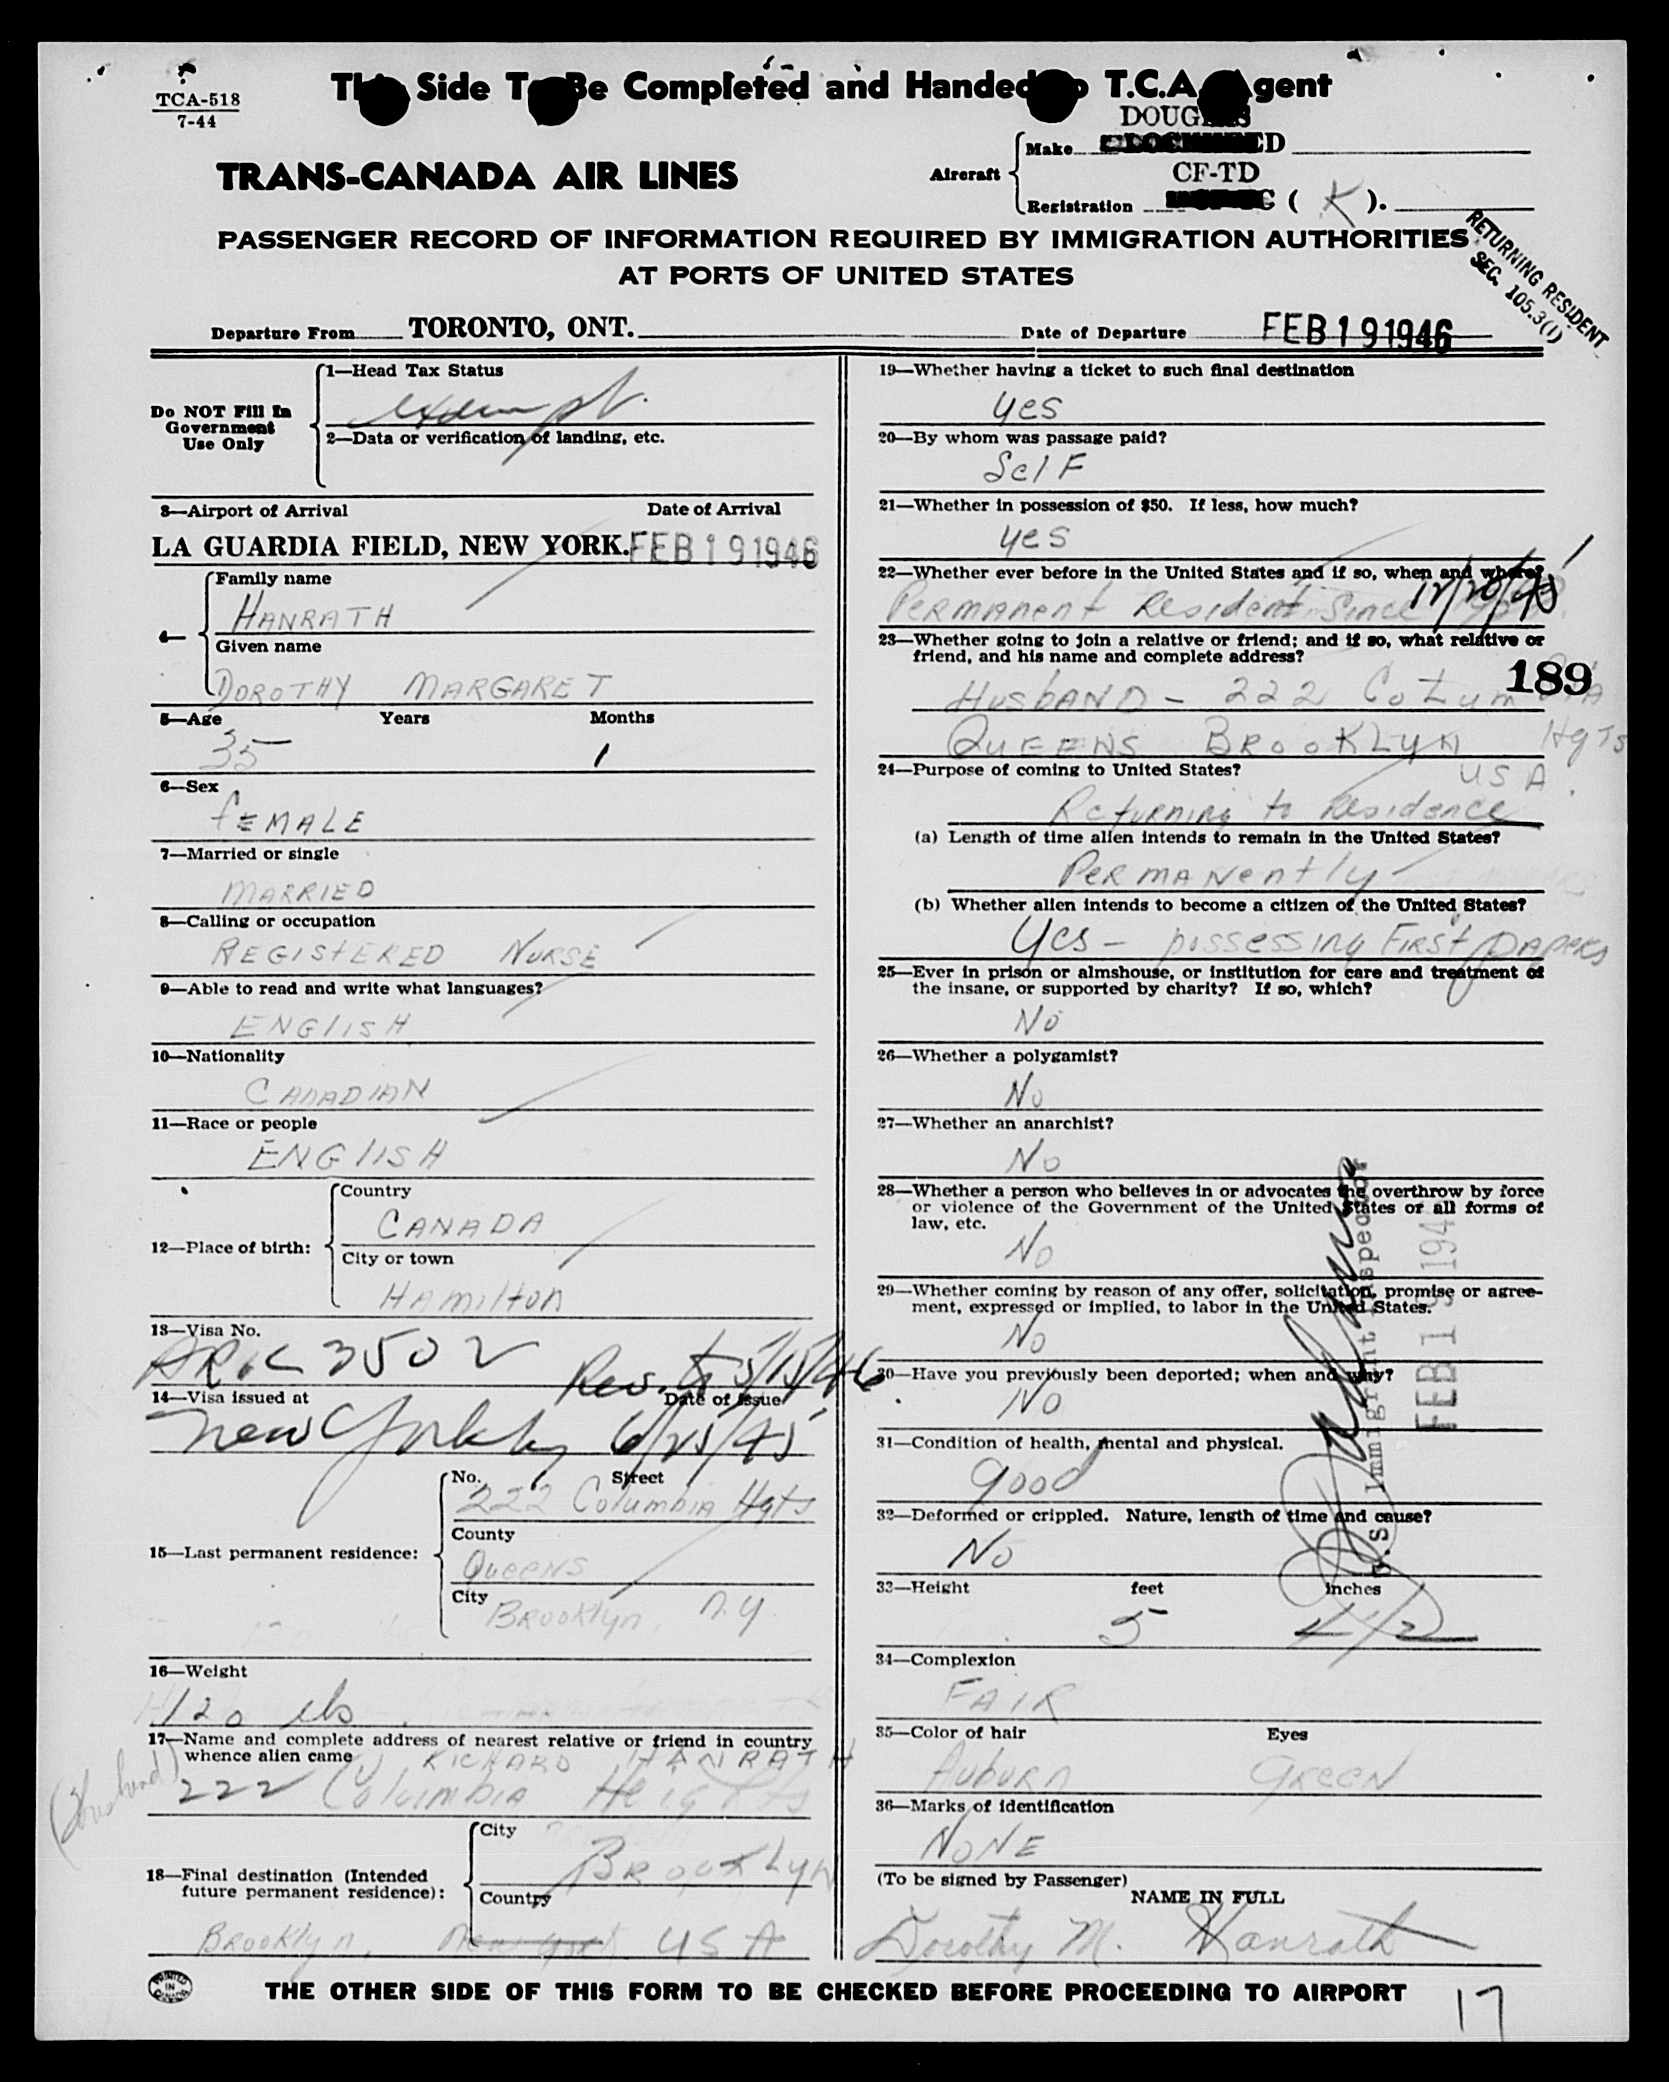 TCA-518
7-44
This Side To Be Completed and Handed to T.C.A. Agent
TRANS-CANADA AIR LINES
Aircraft
DOUGLAS
Make
CF-TD
Registration ( K ).
PASSENGER RECORD OF INFORMATION REQUIRED BY IMMIGRATION AUTHORITIES
AT PORTS OF UNITED STATES
RETURNING RESIDENT
SEC. 105.3(1)
Departure From TORONTO, ONT. Date of Departure FEB 19 1946
Do NOT Fill In
Government
Use Only
1—Head Tax Status
exempt
2—Data or verification of landing, etc.
3—Airport of Arrival Date of Arrival
LA GUARDIA FIELD, NEW YORK. FEB 19 1946
4—
Family name
HANRATH
Given name
DOROTHY MARGARET
5—Age Years Months
35 1
6—Sex
FEMALE
7—Married or single
MARRIED
8—Calling or occupation
REGISTERED NURSE
9—Able to read and write what languages?
ENGLISH
10—Nationality
CANADIAN
11—Race or people
ENGLISH
12—Place of birth:
Country
CANADA
City or town
HAMILTON
13—Visa No.
3502
Rev. to 5/15/46
14—Visa issued at Date of Issue
New York 6/25/45
15—Last permanent residence:
No. Street
222 Columbia Hgts
County
Queens
City
Brooklyn, N.Y.
16—Weight
120 lbs.
17—Name and complete address of nearest relative or friend in country
whence alien came RICHARD HANRATH
(Husband) 222 Columbia Heights
18—Final destination (Intended
future permanent residence):
City
BROOKLYN
Country
Brooklyn, New York USA
19—Whether having a ticket to such final destination
yes
20—By whom was passage paid?
Self
21—Whether in possession of $50. If less, how much?
yes
22—Whether ever before in the United States and if so, when and where?
Permanent Resident Since 12/20/45
23—Whether going to join a relative or friend; and if so, what relative or
friend, and his name and complete address?
189
HUSBAND - 222 Columbia
QUEENS BROOKLYN Hgts
USA.
24—Purpose of coming to United States?
Returning to Residence
(a) Length of time alien intends to remain in the United States?
Permanently
(b) Whether alien intends to become a citizen of the United States?
Yes - possessing First Papers
25—Ever in prison or almshouse, or institution for care and treatment of
the insane, or supported by charity? If so, which?
No
26—Whether a polygamist?
No
27—Whether an anarchist?
No
28—Whether a person who believes in or advocates the overthrow by force
or violence of the Government of the United States or all forms of
law, etc.
No
29—Whether coming by reason of any offer, solicitation, promise or agree-
ment, expressed or implied, to labor in the United States.
No
30—Have you previously been deported; when and why?
No
31—Condition of health, mental and physical.
good
32—Deformed or crippled. Nature, length of time and cause?
No
U.S. Immigrant Inspector
FEB 19 194
33—Height feet inches
5 4 1/2
34—Complexion
FAIR
35—Color of hair Eyes
Auburn Green
36—Marks of identification
NONE
(To be signed by Passenger)
NAME IN FULL
Dorothy M. Hanrath
PRINTED
IN
CANADA
THE OTHER SIDE OF THIS FORM TO BE CHECKED BEFORE PROCEEDING TO AIRPORT
17